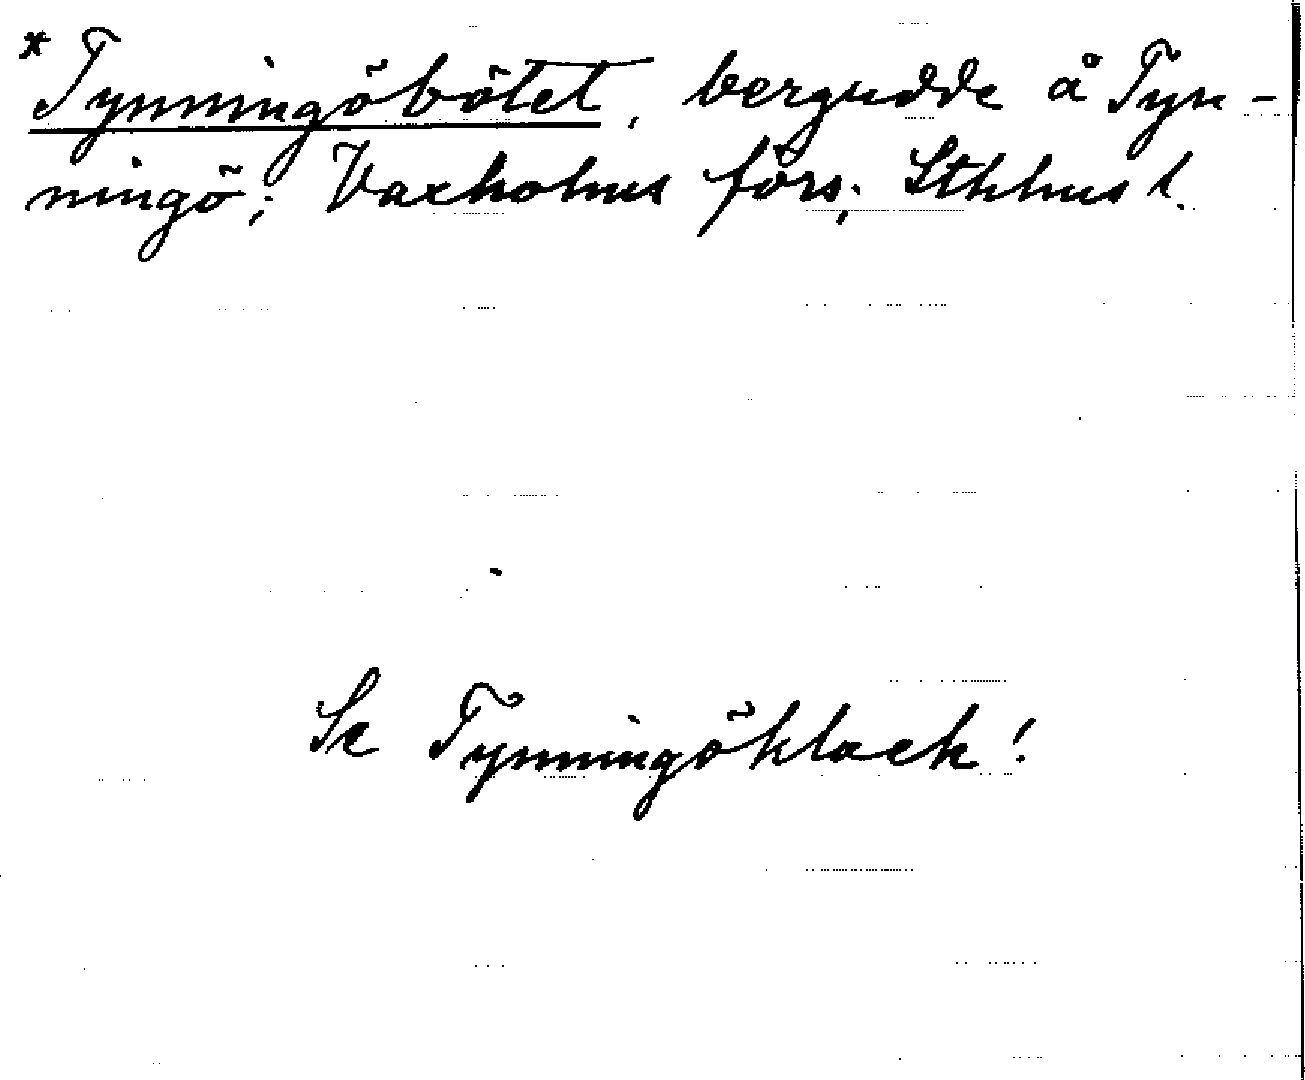 *Tynningöbötet, bergudde å Tyn-
ningö; Vaxholms förs; Sthlms l.
Se Tynningöklack!